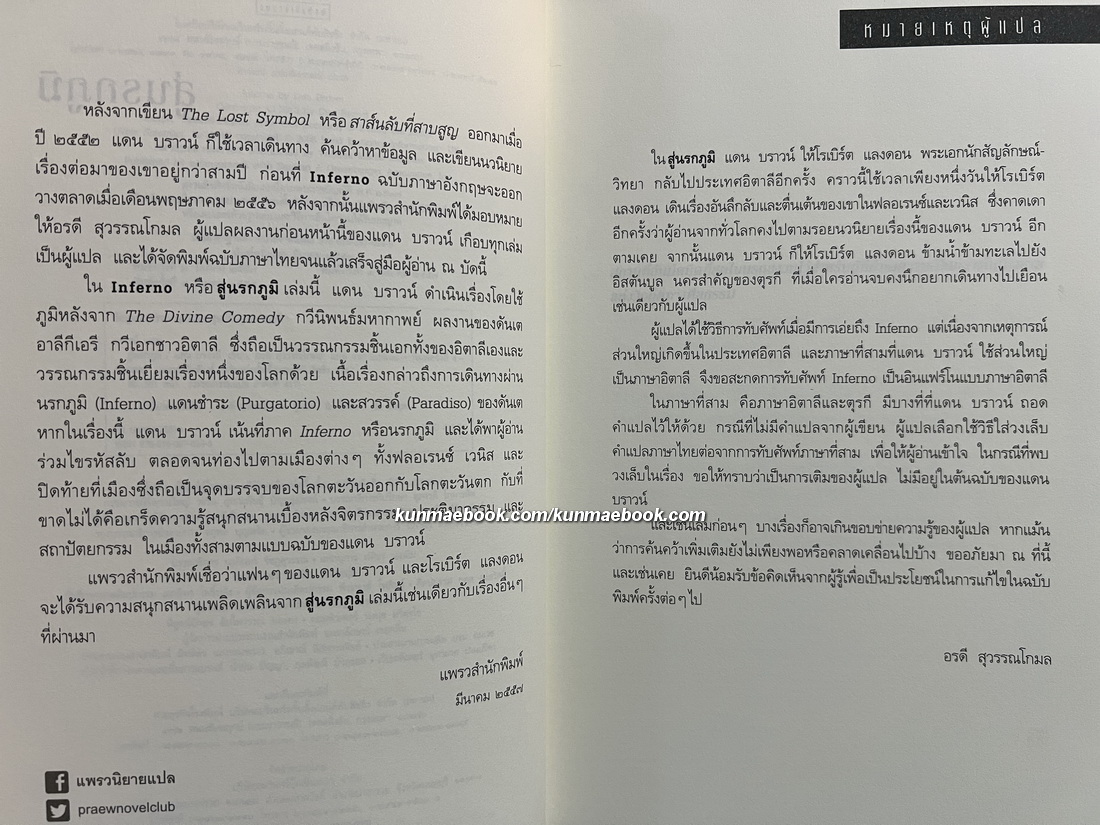 หลังจากเขียน The Lost Symbol หรือ สาส์นลับที่สาบสูญ ออกมาเมื่อ
ปี ๒๕๕๒ แดน บราวน์ ก็ใช้เวลาเดินทาง ค้นคว้าหาข้อมูล และเขียนนวนิยาย
เรื่องต่อมาของเขาอยู่กว่าสามปี ก่อนที่ Inferno ฉบับภาษาอังกฤษจะออก
วางตลาดเมื่อเดือนพฤษภาคม ๒๕๕๖ หลังจากนั้นแพรวสำนักพิมพ์ได้มอบหมาย
ให้อรดี สุวรรณโกมล ผู้แปลผลงานก่อนหน้านี้ของแดน บราวน์ เกือบทุกเล่ม
เป็นผู้แปล และได้จัดพิมพ์ฉบับภาษาไทยจนแล้วเสร็จสู่มือผู้อ่าน ณ บัดนี้
ใน Inferno หรือ สู่นรกภูมิ เล่มนี้ แดน บราวน์ ดำเนินเรื่องโดยใช้
ภูมิหลังจาก The Divine Comedy กวีนิพนธ์มหากาพย์ ผลงานของดันเต
อาลีกีเอรี กวีเอกชาวอิตาลี ซึ่งถือเป็นวรรณกรรมชิ้นเอกทั้งของอิตาลีเองและ
วรรณกรรมชิ้นเยี่ยมเรื่องหนึ่งของโลกด้วย เนื้อเรื่องกล่าวถึงการเดินทางผ่าน
นรกภูมิ (Inferno) แดนชำระ (Purgatorio) และสวรรค์ (Paradiso) ของดันเต
หากในเรื่องนี้ แดน บราวน์ เน้นที่ภาค Inferno หรือนรกภูมิ และได้พาผู้อ่าน
ร่วมไขรหัสลับ ตลอดจนท่องไปตามเมืองต่างๆ ทั้งฟลอเรนซ์ เวนิส และ
ปิดท้ายที่เมืองซึ่งถือเป็นจุดบรรจบของโลกตะวันออกกับโลกตะวันตก กับที่
ขาดไม่ได้คือเกร็ดความรู้สนุกสนานเบื้องหลังจิตรกรรม ประติมากรรม และ
สถาปัตยกรรม ในเมืองทั้งสามตามแบบฉบับของแดน บราวน์
แพรวสำนักพิมพ์เชื่อว่าแฟนๆ ของแดน บราวน์ และโรเบิร์ต แลงดอน
จะได้รับความสนุกสนานเพลิดเพลินจาก สู่นรกภูมิ เล่มนี้เช่นเดียวกับเรื่องอื่นๆ
ที่ผ่านมา
แพรวสำนักพิมพ์
มีนาคม ๒๕๕๗
แพรวนิยายแปล
praewnovelclub
หมายเหตุผู้แปล
ใน สู่นรกภูมิ แดน บราวน์ ให้โรเบิร์ต แลงดอน พระเอกนักสัญลักษณ์-
วิทยา กลับไปประเทศอิตาลีอีกครั้ง คราวนี้ใช้เวลาเพียงหนึ่งวันให้โรเบิร์ต
แลงดอน เดินเรื่องอันลึกลับและตื่นเต้นของเขาในฟลอเรนซ์และเวนิส ซึ่งคาดเดา
อีกครั้งว่าผู้อ่านจากทั่วโลกคงไปตามรอยนวนิยายเรื่องนี้ของแดน บราวน์ อีก
ตามเคย จากนั้นแดน บราวน์ ก็ให้โรเบิร์ต แลงดอน ข้ามน้ำข้ามทะเลไปยัง
อิสตันบูล นครสำคัญของตุรกี ที่เมื่อใครอ่านจบคงนึกอยากเดินทางไปเยือน
เช่นเดียวกับผู้แปล
ผู้แปลได้ใช้วิธีการทับศัพท์เมื่อมีการเอ่ยถึง Inferno แต่เนื่องจากเหตุการณ์
ส่วนใหญ่เกิดขึ้นในประเทศอิตาลี และภาษาที่สามที่แดน บราวน์ ใช้ส่วนใหญ่
เป็นภาษาอิตาลี จึงขอสะกดการทับศัพท์ Inferno เป็นอินแฟร์โนแบบภาษาอิตาลี
ในภาษาที่สาม คือภาษาอิตาลีและตุรกี มีบางที่ที่แดน บราวน์ ถอด
คำแปลไว้ให้ด้วย กรณีที่ไม่มีคำแปลจากผู้เขียน ผู้แปลเลือกใช้วิธีใส่วงเล็บ
คำแปลภาษาไทยต่อจากการทับศัพท์ภาษาที่สาม เพื่อให้ผู้อ่านเข้าใจ ในกรณีที่พบ
วงเล็บในเรื่อง ขอให้ทราบว่าเป็นการเติมของผู้แปล ไม่มีอยู่ในต้นฉบับของแดน
บราวน์
และเช่นเล่มก่อนๆ บางเรื่องก็อาจเกินขอบข่ายความรู้ของผู้แปล หากแม้น
ว่าการค้นคว้าเพิ่มเติมยังไม่เพียงพอหรือคลาดเคลื่อนไปบ้าง ขออภัยมา ณ ที่นี้
และเช่นเคย ยินดีน้อมรับข้อคิดเห็นจากผู้รู้เพื่อเป็นประโยชน์ในการแก้ไขในฉบับ
พิมพ์ครั้งต่อๆ ไป
อรดี สุวรรณโกมล
kunmaebook.com/kunmaebook.com